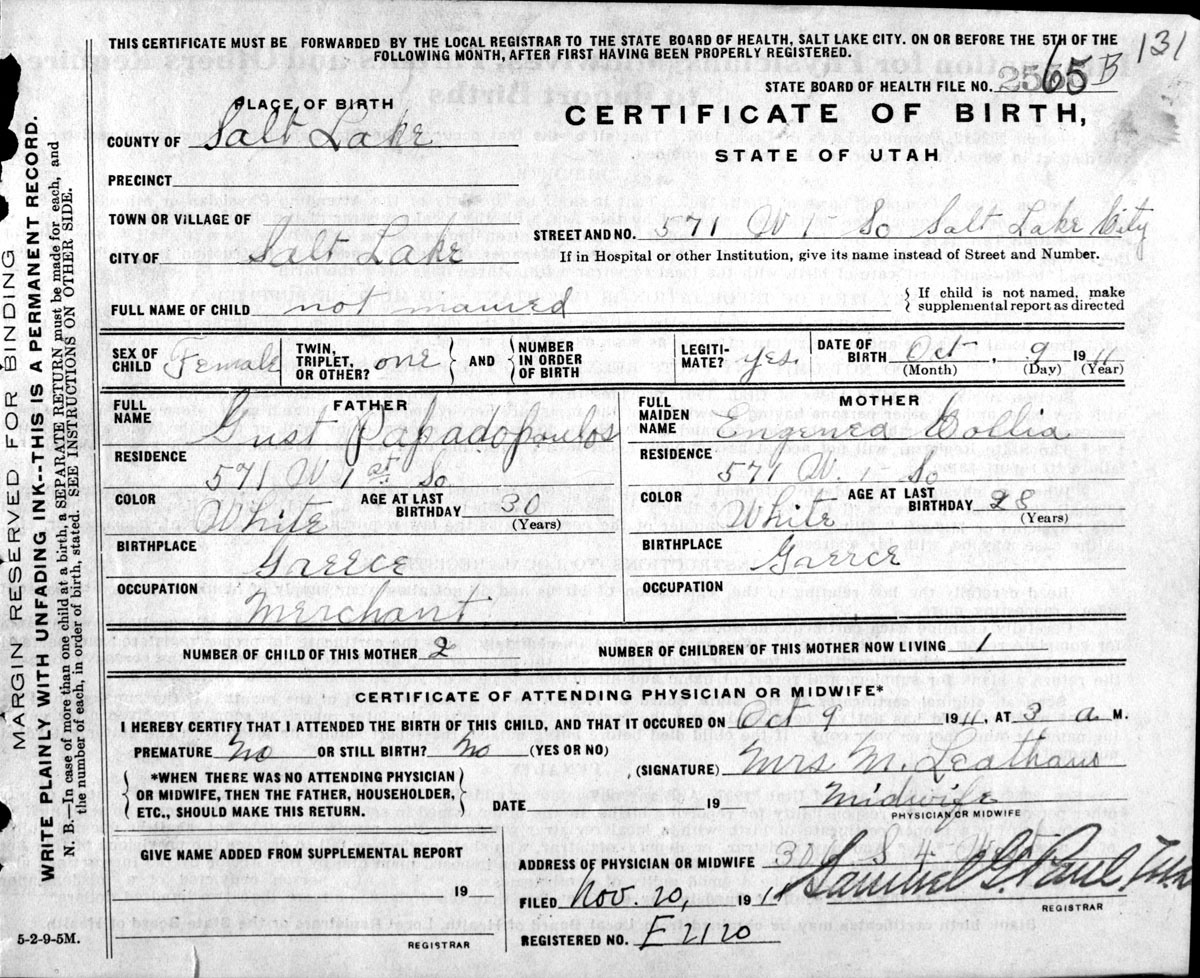 THIS CERTIFICATE MUST BE FORWARDED BY THE LOCAL REGISTRAR TO THE STATE BOARD OF HEALTH, SALT LAKE CITY. ON OR BEFORE THE 5TH OF THE
FOLLOWING MONTH, AFTER FIRST HAVING BEEN PROPERLY REGISTERED.
131
STATE BOARD OF HEALTH FILE NO. 2565 B
PLACE OF BIRTH
CERTIFICATE OF BIRTH,
COUNTY OF Salt Lake
STATE OF UTAH
PRECINCT
TOWN OR VILLAGE OF
STREET AND NO. 571 W 1 So Salt Lake City
CITY OF Salt Lake
If in Hospital or other Institution, give its name instead of Street and Number.
FULL NAME OF CHILD not named
{ If child is not named, make
supplemental report as directed
SEX OF CHILD Female
TWIN, TRIPLET, OR OTHER? one } AND { NUMBER IN ORDER OF BIRTH
LEGITI-MATE? yes.
DATE OF BIRTH Oct , 9 1911
(Month) (Day) (Year)
FATHER
FULL NAME Gust Papadopouros
RESIDENCE
571 W 1st So
COLOR White AGE AT LAST BIRTHDAY 30
(Years)
BIRTHPLACE
Greece
OCCUPATION
Merchant
MOTHER
FULL MAIDEN NAME Engenea Collia
RESIDENCE
571 W. 1 So
COLOR White AGE AT LAST BIRTHDAY 28
(Years)
BIRTHPLACE
Greece
OCCUPATION
NUMBER OF CHILD OF THIS MOTHER 2
NUMBER OF CHILDREN OF THIS MOTHER NOW LIVING 1
CERTIFICATE OF ATTENDING PHYSICIAN OR MIDWIFE*
I HEREBY CERTIFY THAT I ATTENDED THE BIRTH OF THIS CHILD, AND THAT IT OCCURED ON Oct 9 1911, AT 3 a M.
PREMATURE No OR STILL BIRTH? No (YES OR NO)
(SIGNATURE) Mrs M.
*WHEN THERE WAS NO ATTENDING PHYSICIAN
OR MIDWIFE, THEN THE FATHER, HOUSEHOLDER,
ETC., SHOULD MAKE THIS RETURN.
DATE 19 Midwife
PHYSICIAN OR MIDWIFE
GIVE NAME ADDED FROM SUPPLEMENTAL REPORT
19
REGISTRAR
ADDRESS OF PHYSICIAN OR MIDWIFE 306 S 4
FILED Nov. 20, 1911 Samuel G. Paul
REGISTRAR
REGISTERED NO. E2120
5-2-9-5M.
MARGIN RESERVED FOR BINDING
WRITE PLAINLY WITH UNFADING INK--THIS IS A PERMANENT RECORD.
N. B.—In case of more than one child at a birth, a SEPARATE RETURN must be made for each, and
the number of each, in order of birth, stated. SEE INSTRUCTIONS ON OTHER SIDE.